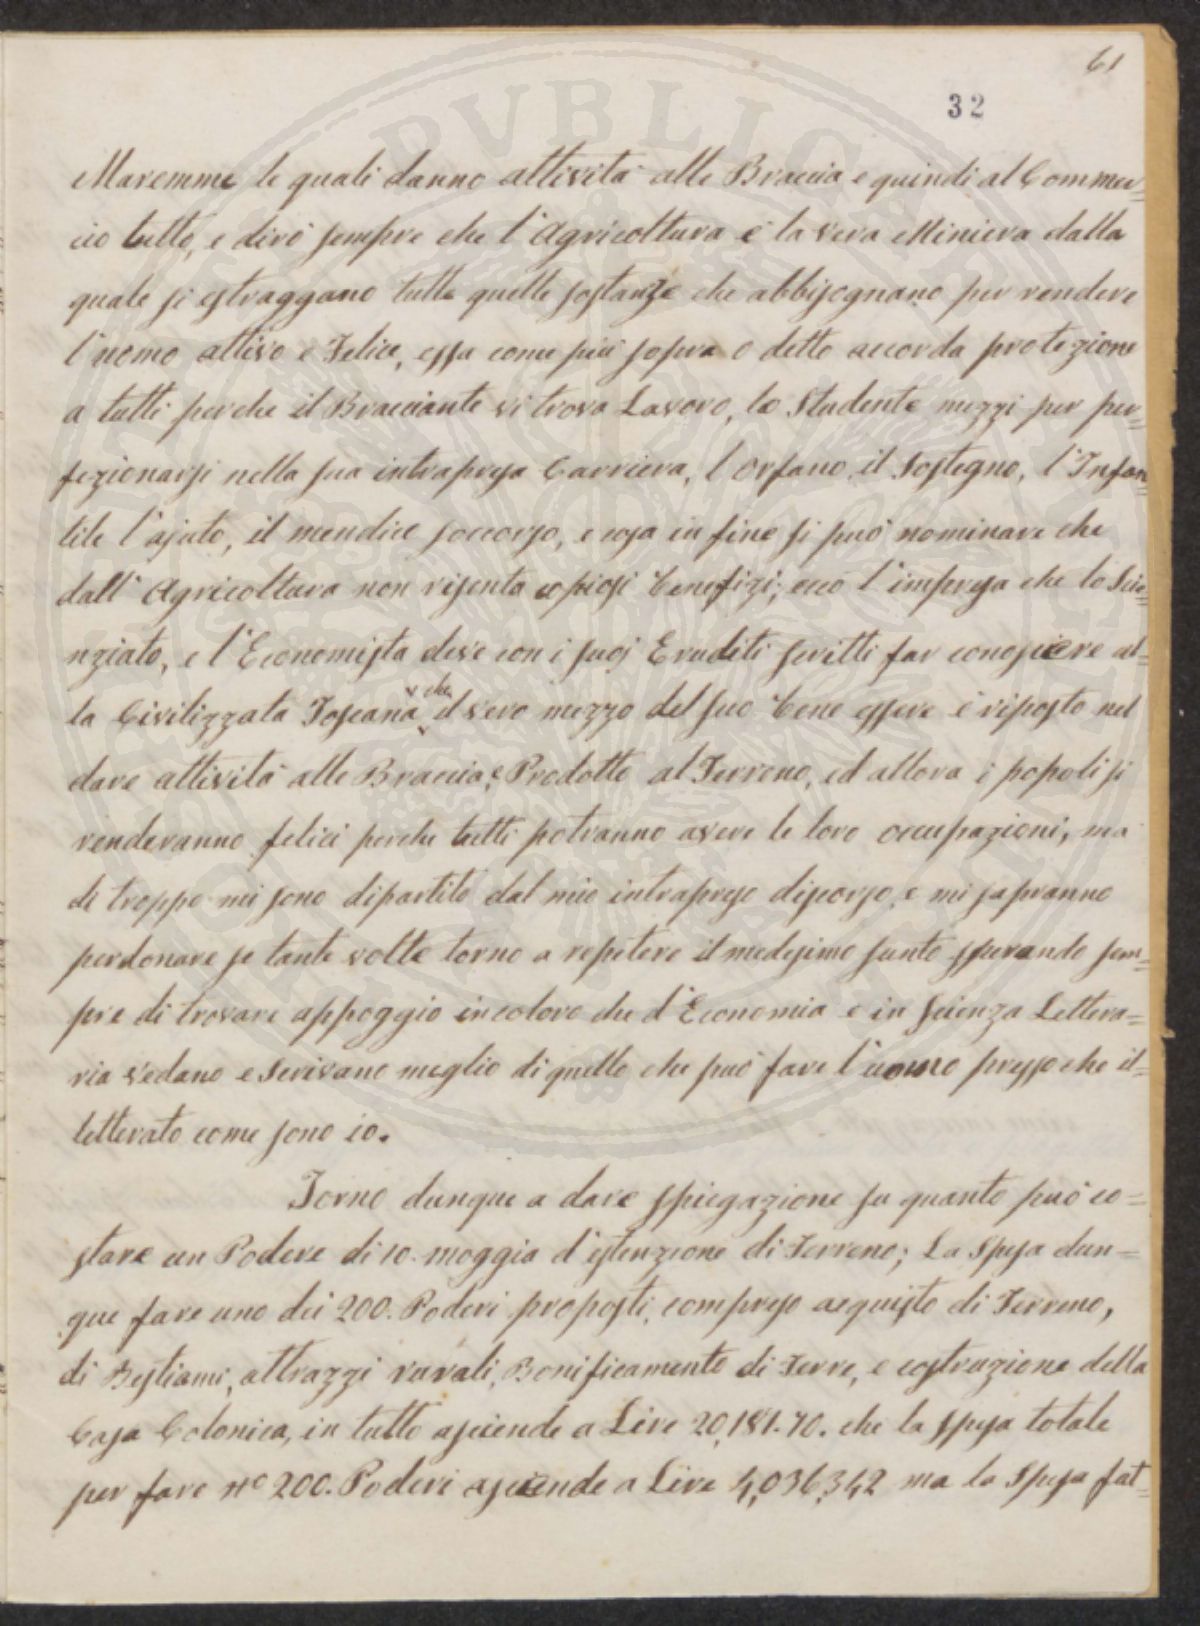 61
32
Maremme le quali danno attività alle Braccia e quindi al Commer=
cio tutto, e dirò sempre che l'Agricoltura è la vera Miniera dalla
quale si estraggano tutte quelle sostanze che abbisognano per rendere
l'uomo attivo e Felice, essa come più sopra o detto accorda protezione
a tutti perche il Bracciante vi trova Lavoro, lo Studente mezzi per per=
fezionarsi nella sua intrapresa Carriera, l'Orfano il Sostegno, l'Infan
tile l'ajuto, il mendico soccorso, e cosa in fine si può nominare che
dall'Agricoltura non risenta copiosi benefizi; ecco l'impresa che lo Scie=
nziato, e l'Economista deve con i suoi Eruditi scritti far conoscere al=
la Civilizzata Toscana che il vero mezzo del suo bene essere è riposto nel
dare attività alle Braccia, e Prodotto al Terreno, ed allora i popoli si
renderanno felici perche tutti potranno avere le loro occupazioni, ma
di troppo mi sono dipartito dal mio intrapreso discorso, e mi sapranno
perdonare se tante volte torno a repetere il medesimo sunto sperando sem=
pre di trovare appoggio in coloro che d'Economia e in Scienza Lettera=
ria vedano e Scrivano meglio di quello che può fare l'uomo presso che il=
letterato come sono io.
Torno dunque a dare spiegazione su quanto può co=
stare un Podere di 10. moggia d'estenzione di Terreno; La Spesa dun=
que fare uno dei 200. Poderi proposti, compreso acquisto di Terreno,
di Bestiami, attrazzi rurali, Bonificamento di Terre, e costruzione della
Casa Colonica, in tutto asciende a Lire 20,181.70. che la spesa totale
per fare N° 200. Poderi asciende a Lire 4,036,342 ma la Spesa fat=
PVBLICA